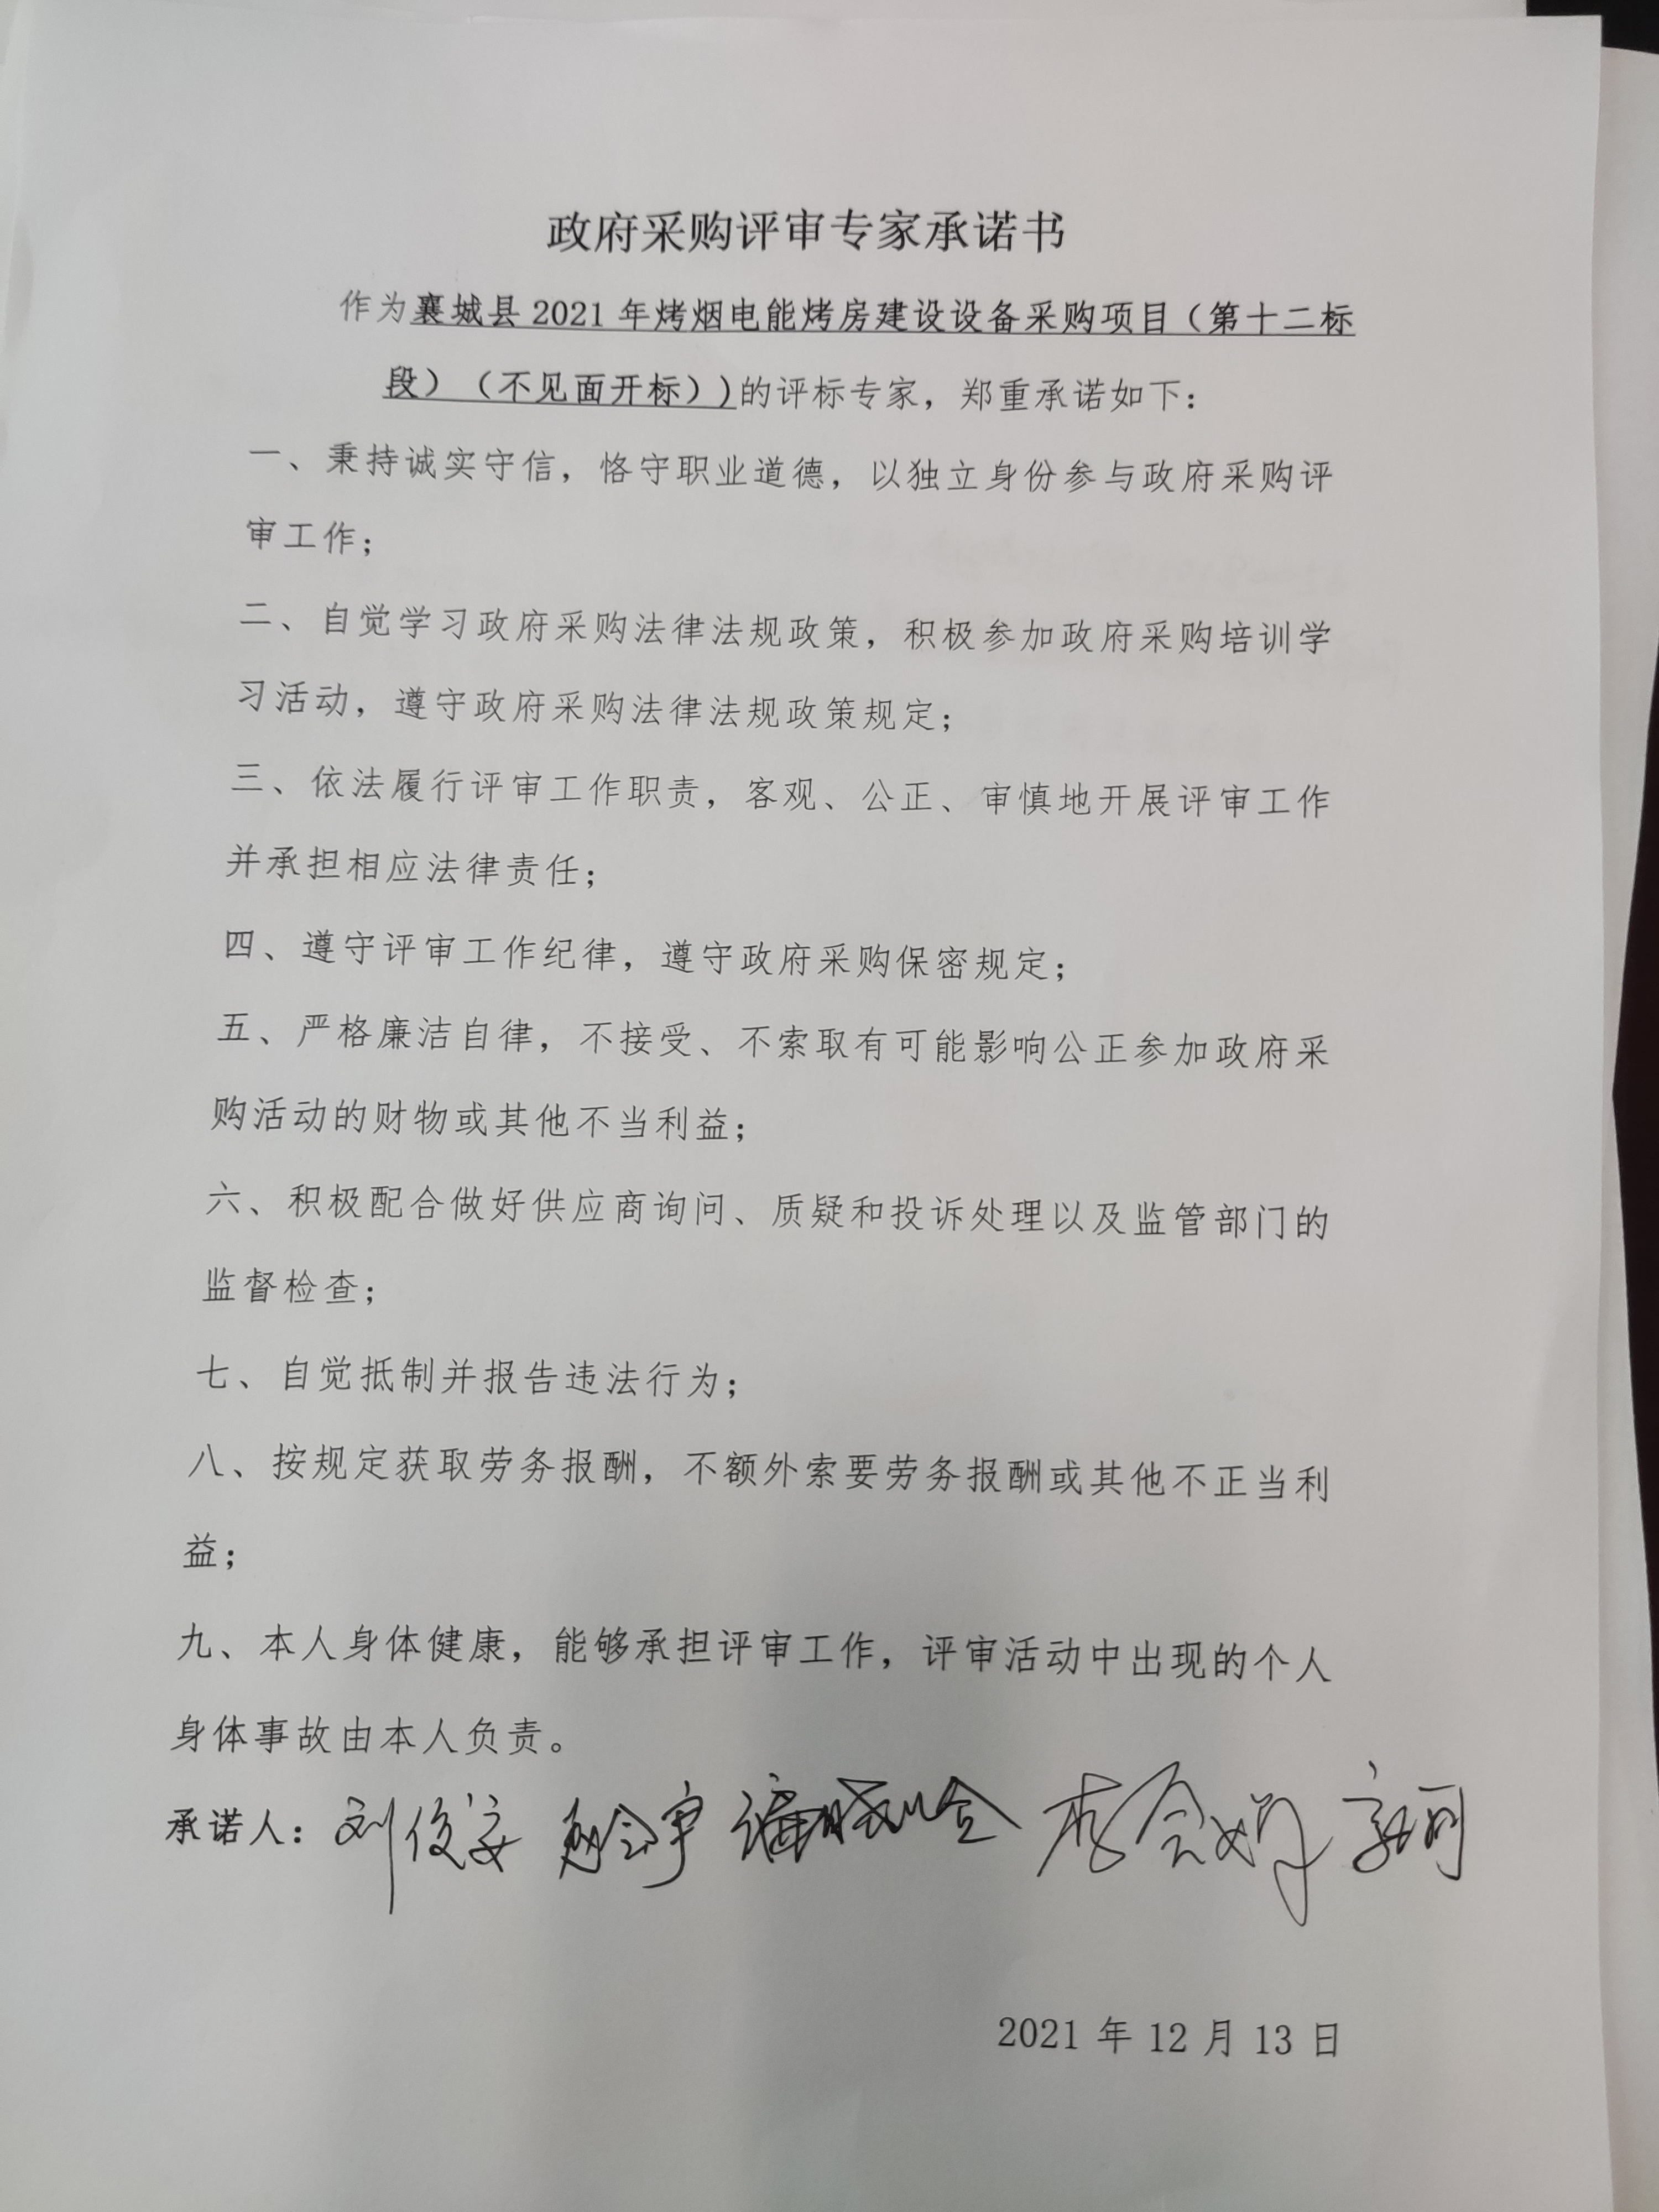 政府采购评审专家承诺书
作为襄城县 2021 年烤烟电能烤房建设设备采购项目（第十二标
段）（不见面开标）)的评标专家，郑重承诺如下：
一、秉持诚实守信，恪守职业道德，以独立身份参与政府采购评
审工作；
二、自觉学习政府采购法律法规政策，积极参加政府采购培训学
习活动，遵守政府采购法律法规政策规定；
三、依法履行评审工作职责，客观、公正、审慎地开展评审工作
并承担相应法律责任；
四、遵守评审工作纪律，遵守政府采购保密规定；
五、严格廉洁自律，不接受、不索取有可能影响公正参加政府采
购活动的财物或其他不当利益；
六、积极配合做好供应商询问、质疑和投诉处理以及监管部门的
监督检查；
七、自觉抵制并报告违法行为；
八、按规定获取劳务报酬，不额外索要劳务报酬或其他不正当利
益；
九、本人身体健康，能够承担评审工作，评审活动中出现的个人
身体事故由本人负责。
承诺人：刘俊安 李会娟
2021 年 12 月 13 日